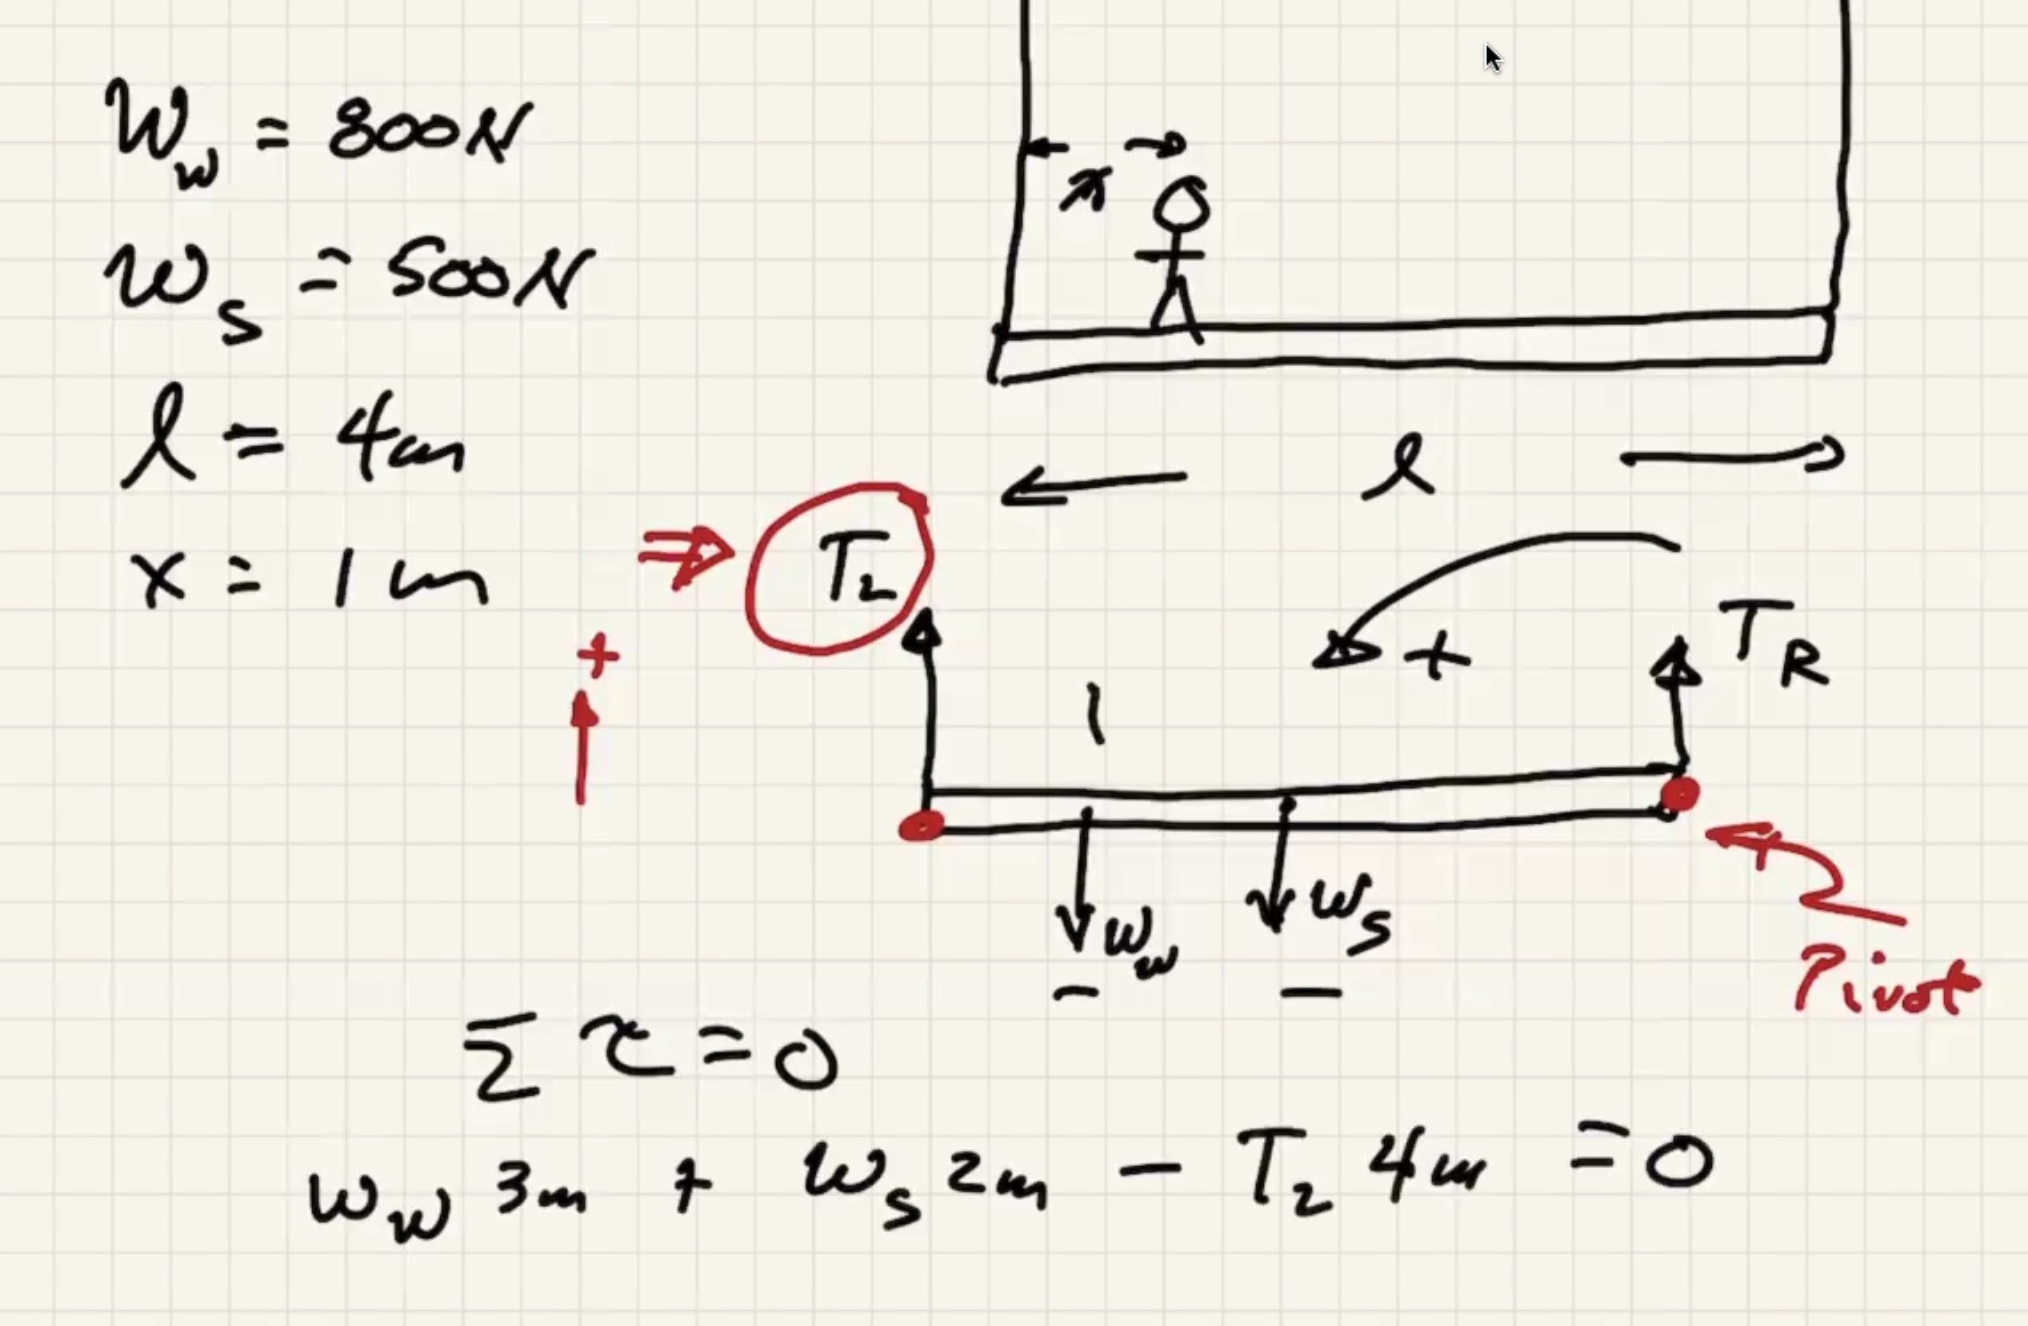 W_w = 800N
x
w_s = 500N
l = 4m
l
T_L
x = 1m
+
+
T_R
1
w_s
w_w
- -
Pivot
Σ τ = 0
w_w 3m + w_s 2m - T_L 4m = 0